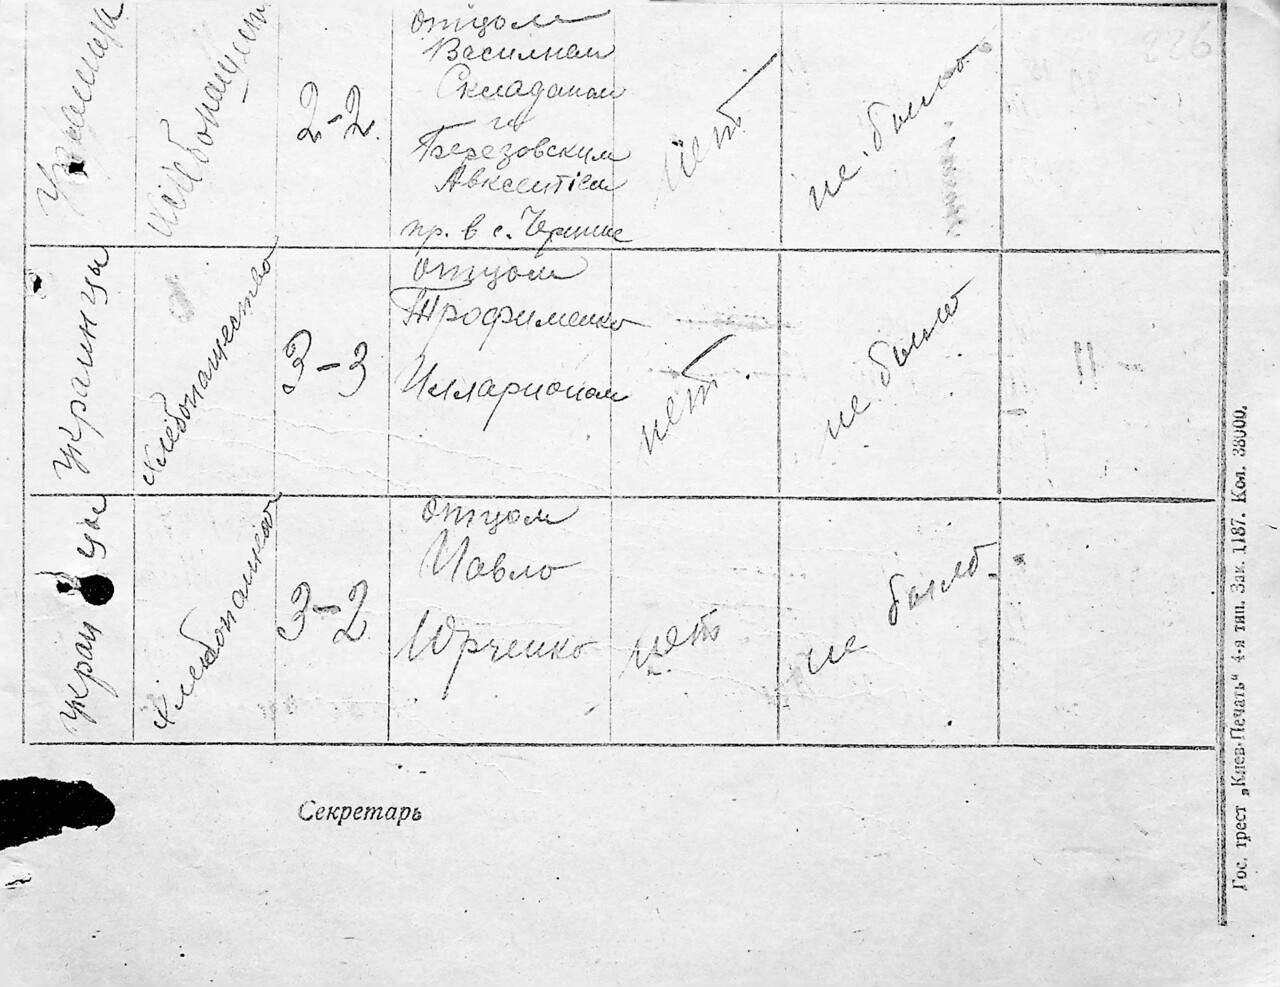 Украинцы
Хлебопашест.
2-2
отцом
Василием
Складаном
и
Березовским
Авксентіем
пр. в с.
нет
не было.
226
Украинцы
Хлебопашество
3-3
отцом
Трофименко
Илларионом
нет
не было
- 11
Украинцы
3-2
отцом
Павло
Юрченко
нет
не было
Секретарь
Гос. трест „Киев-Печать“ 4-я тип. Зак. 1187. Кол. 38000.